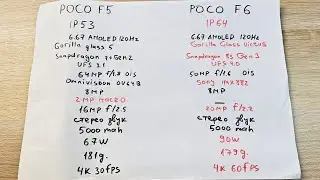 POCO F5
IP53
6.67 AMOLED 120Hz
Gorilla glass 5
Snapdragon 7+ Gen2
UFS 3.1
64MP f/1.8 OIS
Omnivision OV64B
8MP
2MP MACRO
16MP f/2.5
стерео звук
5000 mah
67W
181g.
4K 30fps
POCO F6
IP64
6.67 AMOLED 120Hz
Gorilla Glass Victus
Snapdragon 8s Gen3
UFS 4.0
50MP f/1.6 OIS
Sony imx882
8MP
—
20MP f/2.2
стерео звук
5000mah
90W
179g.
4K 60fps